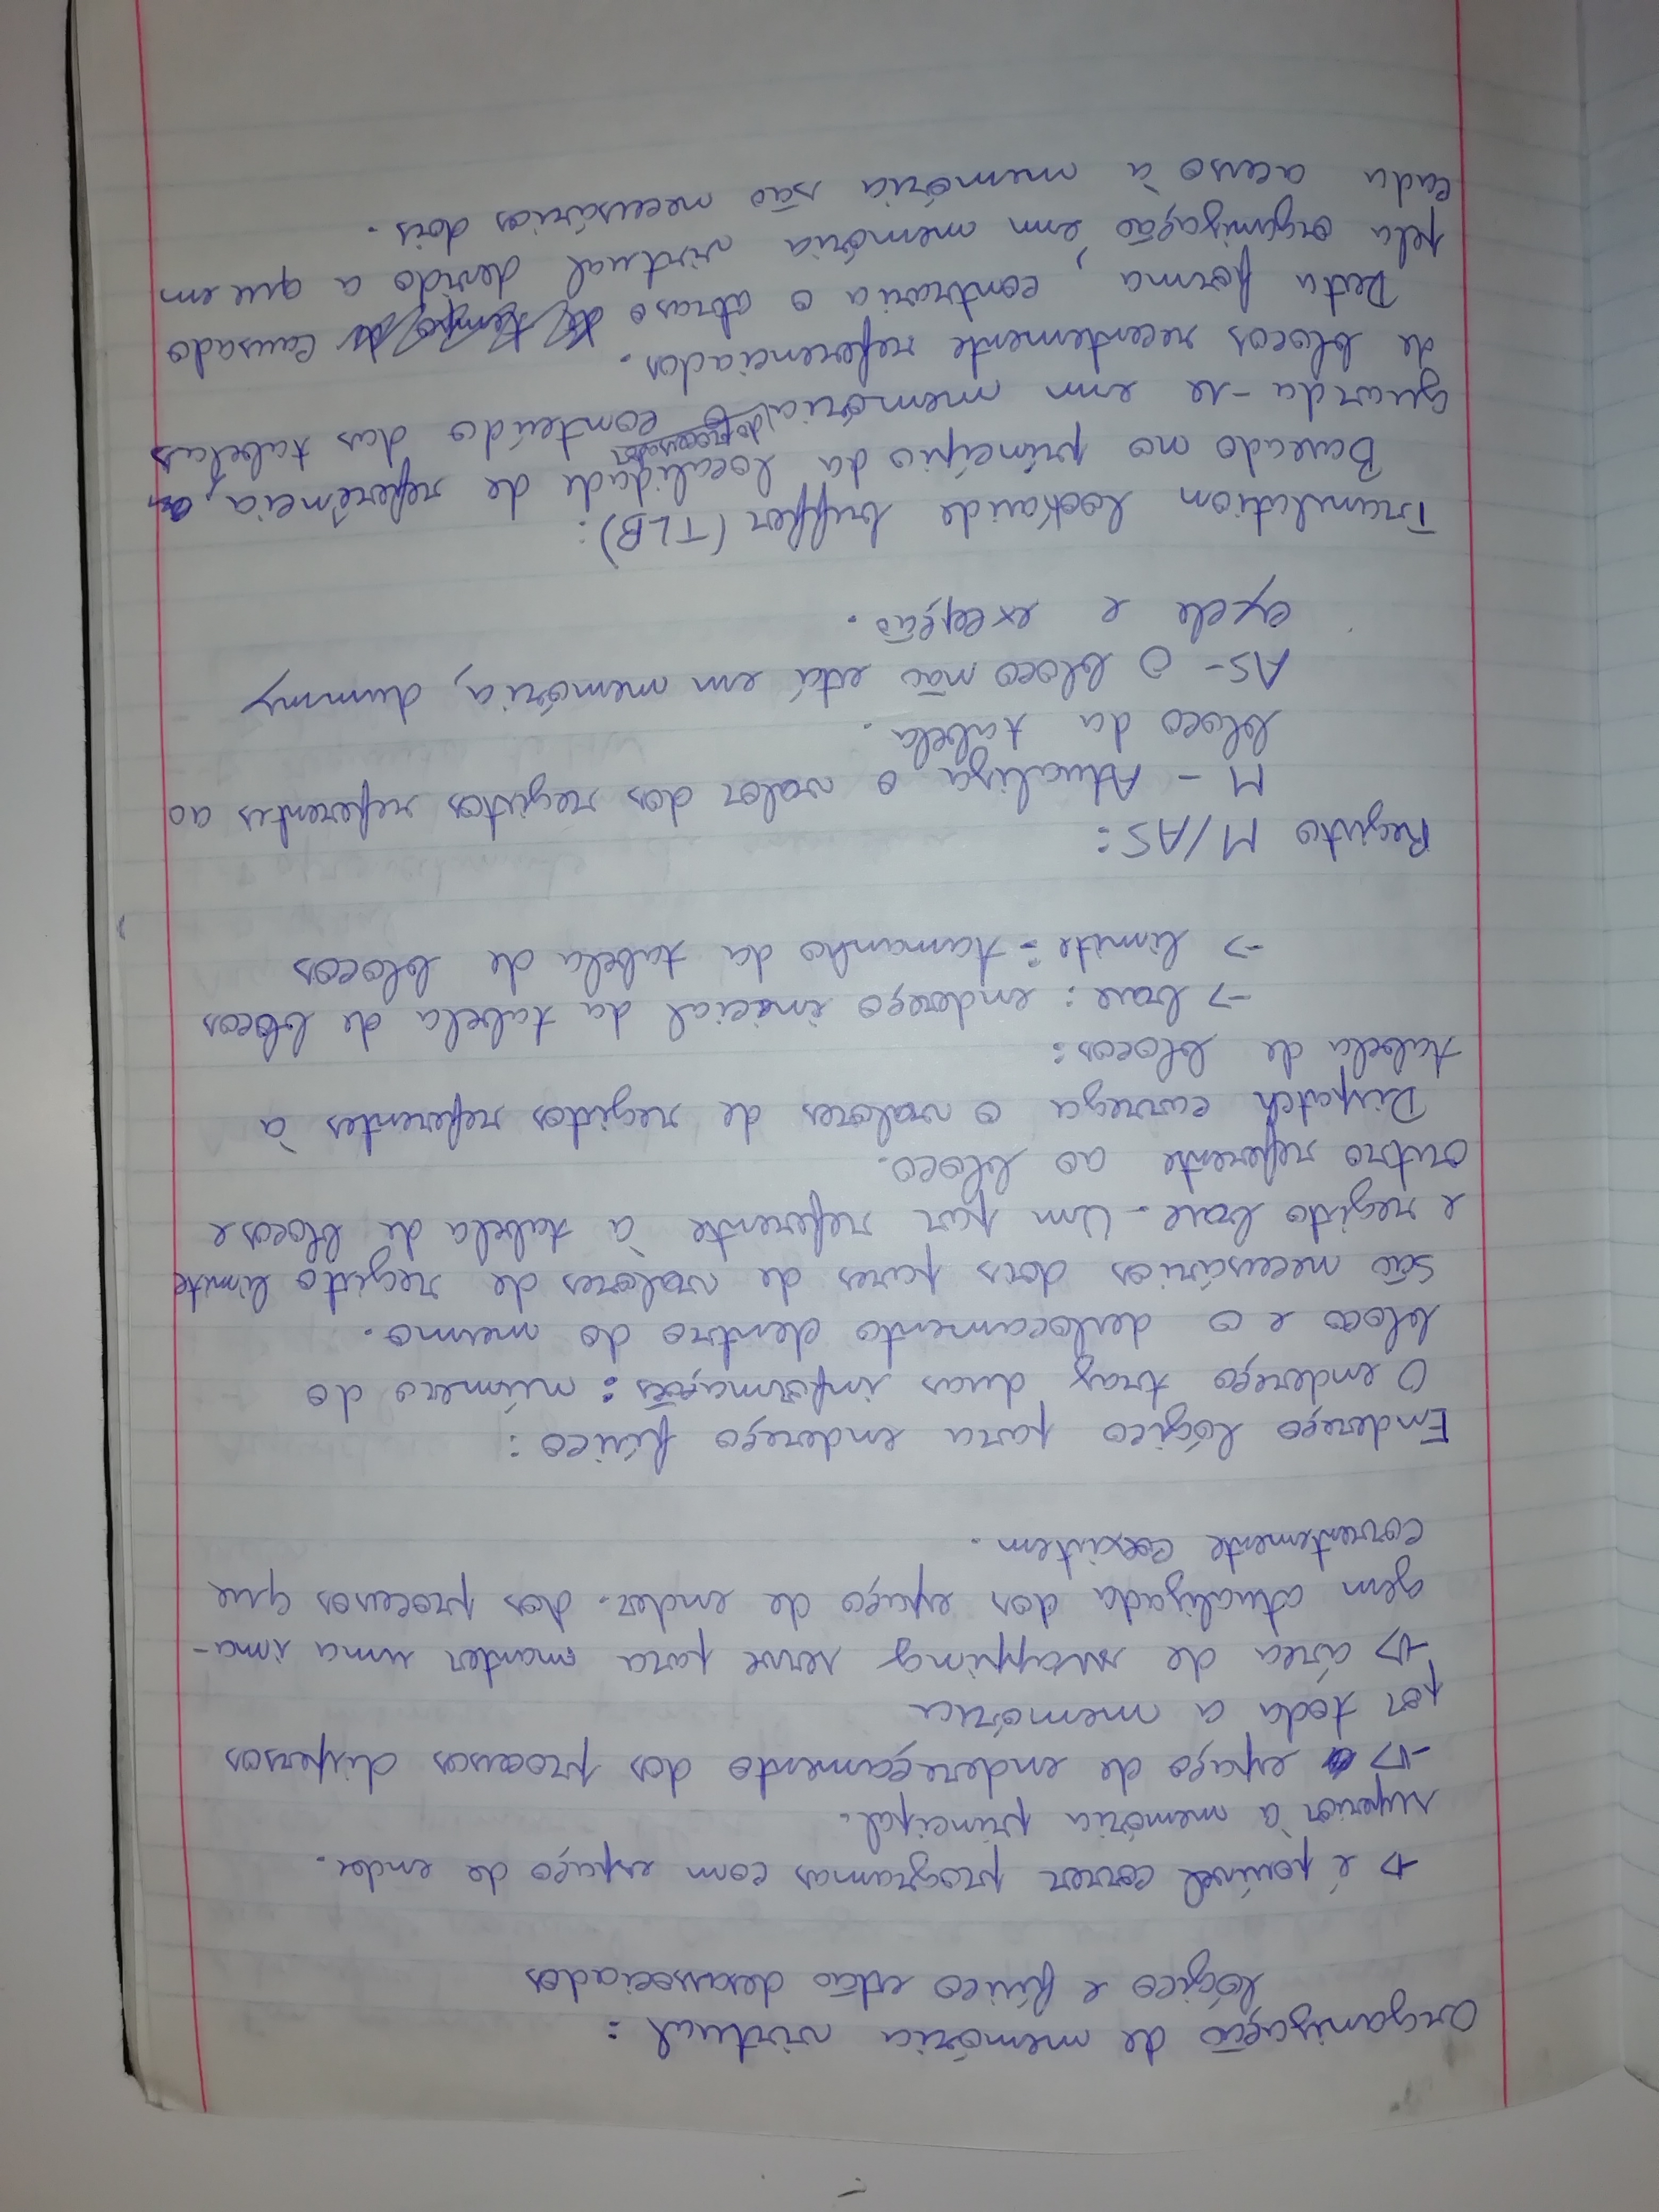 Organização de memória virtual :
lógico e físico estão desassociados
→ é possível correr programas com espaço de ender.
superior à memória principal.
→ espaço de endereçamento dos processos dispersos
por toda a memória
→ área de swapping serve para manter uma ima-
gem atualizada dos espaço de ender. dos processos que
correntemente coexistem.
Endereço lógico para endereço físico :
O endereço traz duas informações : número do
bloco e o deslocamento dentro do mesmo.
São necessários dois pares de valores de registo limite
e registo base. Um par referente à tabela de blocos e
outro referente ao bloco.
Dispatch carrega o valores de registos referentes à
tabela de blocos :
→ base : endereço inicial da tabela de blocos
→ limite : tamanho da tabela de blocos
Registo M/AS :
M - Atualiza o valor dos registos referentes ao
bloco da tabela.
AS - O bloco não está em memória, dummy
cycle e excepção.
Translation lookaside buffer (TLB) :
Baseado no princípio da localidade de referência,
guarda-se em memória do processador o conteúdo das tabelas
de blocos recentemente referenciados.
Desta forma, contraria o atraso causado
pela organização em memória virtual devido a que em
cada acesso à memória são necessários dois.